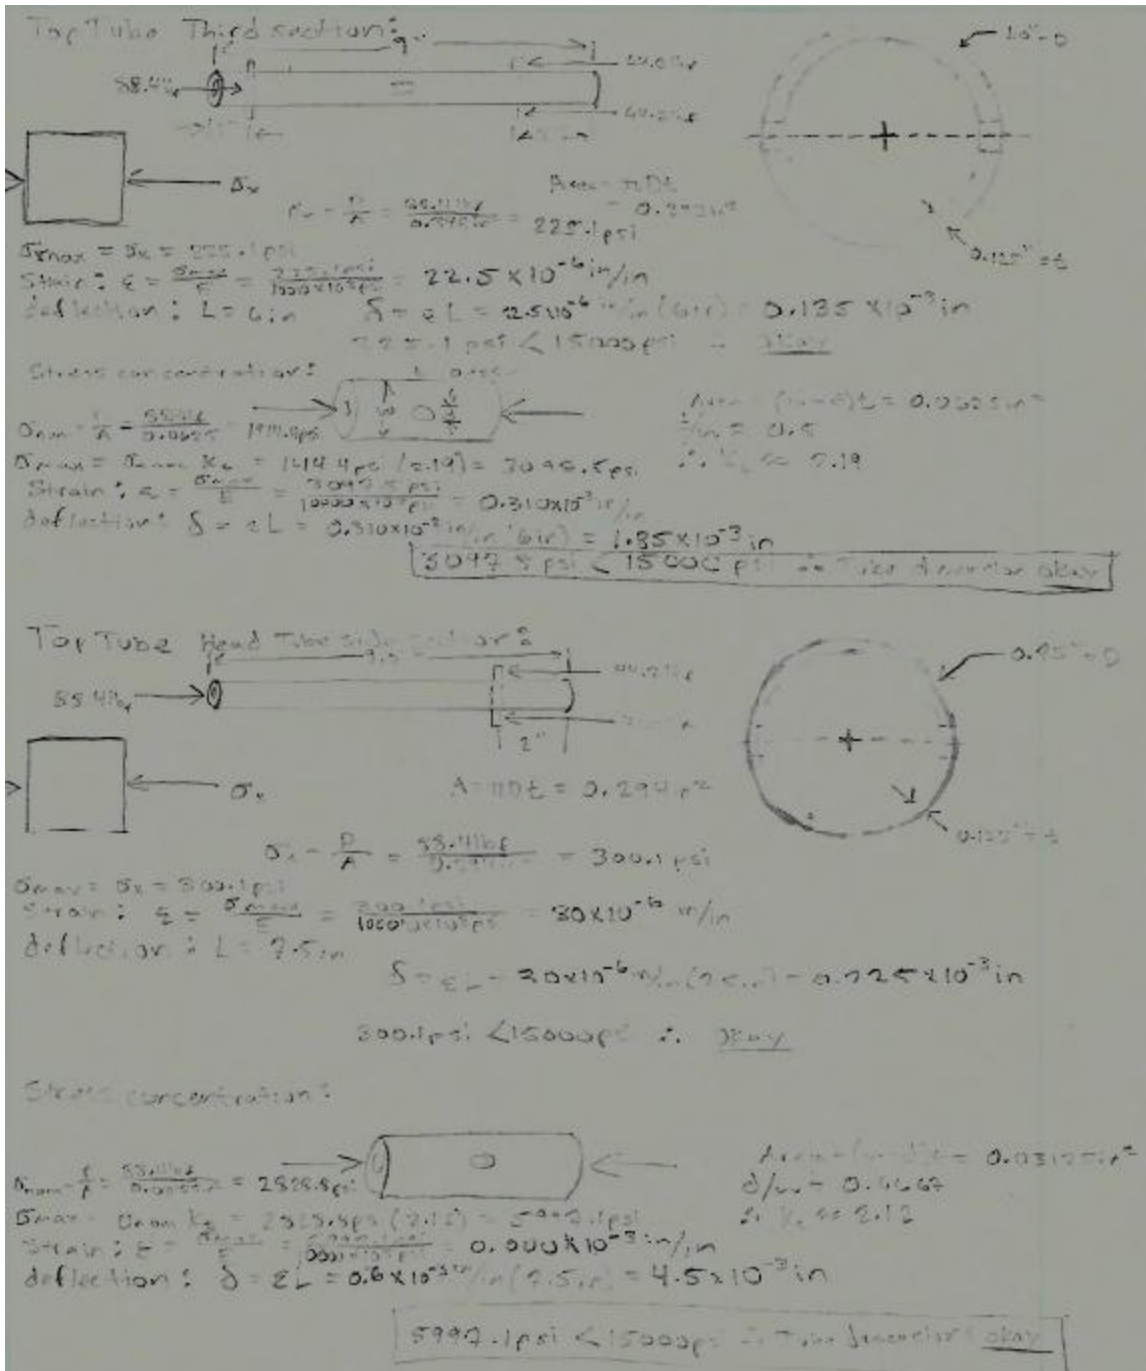 Top Tube Third section:
9"
88.4lbf
1.0"=D
44.2lbf
σx
Area = πDt
= 0.393in²
σx = P/A = 88.4lbf/0.393in² = 225.1psi
0.125"=t
σmax = σx = 225.1psi
Strain: ε = σmax/E = 225.1psi/10000x10³psi = 22.5x10⁻⁶in/in
deflection: L = 6in δ = εL = 22.5x10⁻⁶in/in(6in) = 0.135x10⁻³in
225.1 psi < 15000psi ∴ okay
Stress concentration:
Area = (w-d)t = 0.0625in²
σnom = P/A = 88.4lbf/0.0625 = 1414.4psi
d/w = 0.5
σmax = σnom Kt = 1414.4psi (2.19) = 3097.5psi
∴ Kt ≈ 2.19
Strain: ε = σmax/E = 3097.5psi/10000x10³psi = 0.310x10⁻³in/in
deflection: δ = εL = 0.310x10⁻³in/in(6in) = 1.85x10⁻³in
3097.5psi < 15000psi ∴ Tube okay
Top Tube Head Tube side section:
88.4lbf
44.2lbf
=D
2"
σx
A = πDt = 0.294in²
0.125"=t
σx = P/A = 88.4lbf/0.294in² = 300.1psi
σmax = σx = 300.1psi
Strain: ε = σmax/E = 300.1psi/10000x10³psi = 30x10⁻⁶in/in
deflection: L = 7.5in
δ = εL = 30x10⁻⁶in/in(7.5in) = 0.225x10⁻³in
300.1psi < 15000psi ∴ okay
Stress concentration:
Area = (w-d)t = 0.03125in²
σnom = P/A = 88.4lbf/0.03125 = 2828.8psi
σmax = σnom Kt = 2828.8psi (2.12) = 5997.1psi
∴ Kt ≈ 2.12
Strain: ε = σmax/E = = x10⁻³in/in
deflection: δ = εL = 0.6x10⁻³in/in(7.5in) = 4.5x10⁻³in
5997.1psi < 15000psi ∴ Tube okay